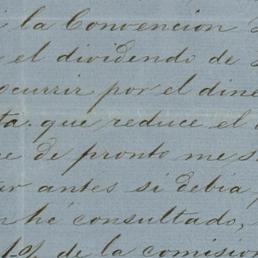 la Convencion
el dividendo de
ocurrir por el dine
ta. que reduce el
e de pronto me s
ar antes si debia
n hé consultado,
1% de la comision